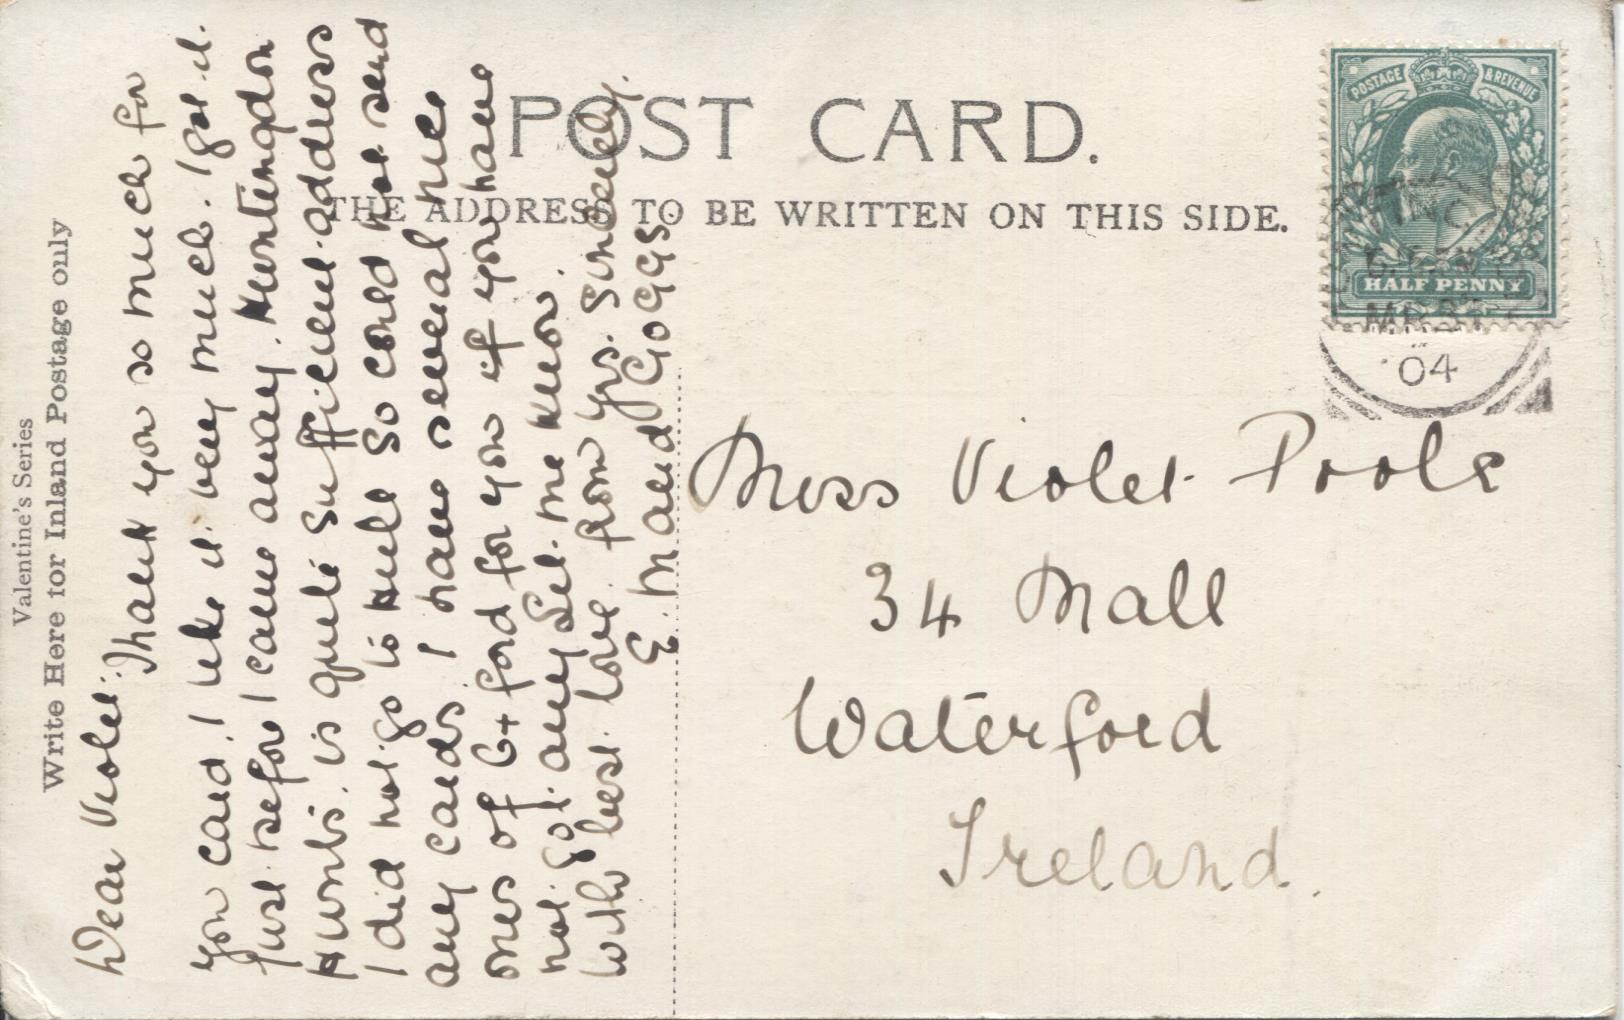 Valentine's Series
Write Here for Inland Postage only
POST CARD.
THE ADDRESS TO BE WRITTEN ON THIS SIDE.
POSTAGE & REVENUE
HALF PENNY
MR 31
04
Dear Violet.
Thank you so much for
you card, I like it very much. I got it.
just before I came away. Huntingdon
Hunts. is quite sufficient address
I did not go to Hull so could not send
any cards. I have several nice
ones of G+ ford for you if you have
not got any Let me know.
With best love from Yrs. Sincerely.
E. Maud Goggs.
Miss Violet Poole
34 Mall
Waterford
Ireland.